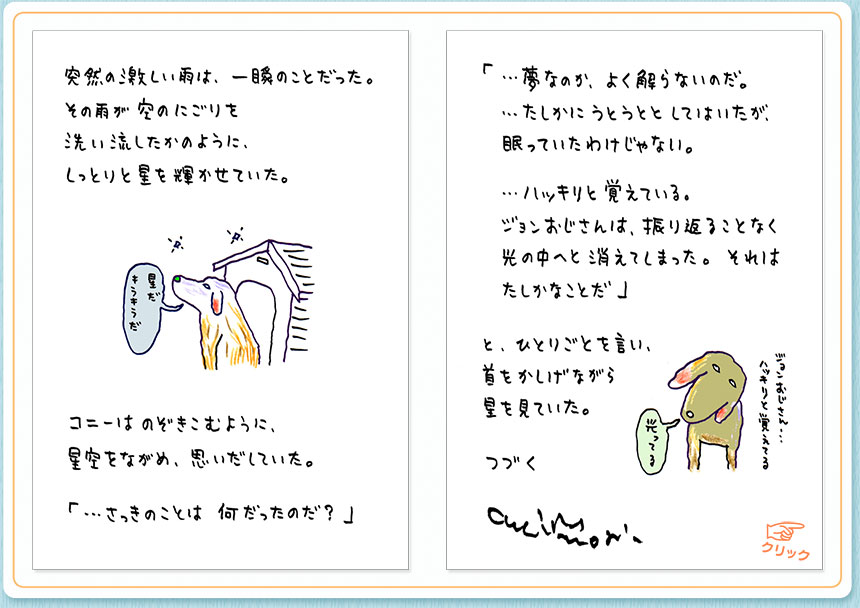 突然の激しい雨は、一瞬のことだった。
その雨が 空のにごりを
洗い流したかのように、
しっとりと星を輝かせていた。
星だ
キラキラだ
コニーは のぞきこむように、
星空をながめ、思いだしていた。
「…さっきのことは 何だったのだ？」
「…夢なのか、よく解らないのだ。
…たしかに うとうとと してはいたが、
眠っていたわけじゃない。
…ハッキリと 覚えている。
ジョンおじさんは、振り返ることなく
光の中へと 消えてしまった。それは
たしかなことだ」
と、ひとりごとを言い、
首をかしげながら
星を見ていた。
ジョンおじさん…
ハッキリと覚えてる
光ってる
つづく
クリック